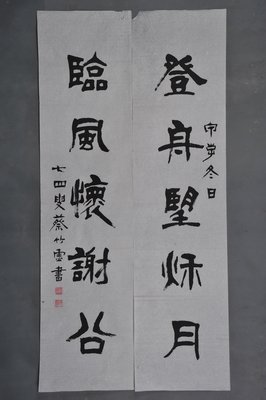 登舟望秋月
冬日
臨風懷謝公
七四叟蔡竹雲書